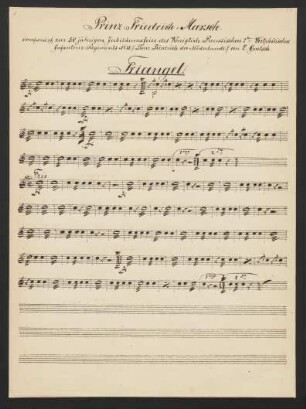 Prinz Friedrich-Marsch.
componirt zum 50 jährigen Jubiläumsfeier des Königlich Preussischen 2ten Westfälischen
Infanterie Regiments No 15 (Prinz Friedrich der Niederlande) von
Triangel.
Trio